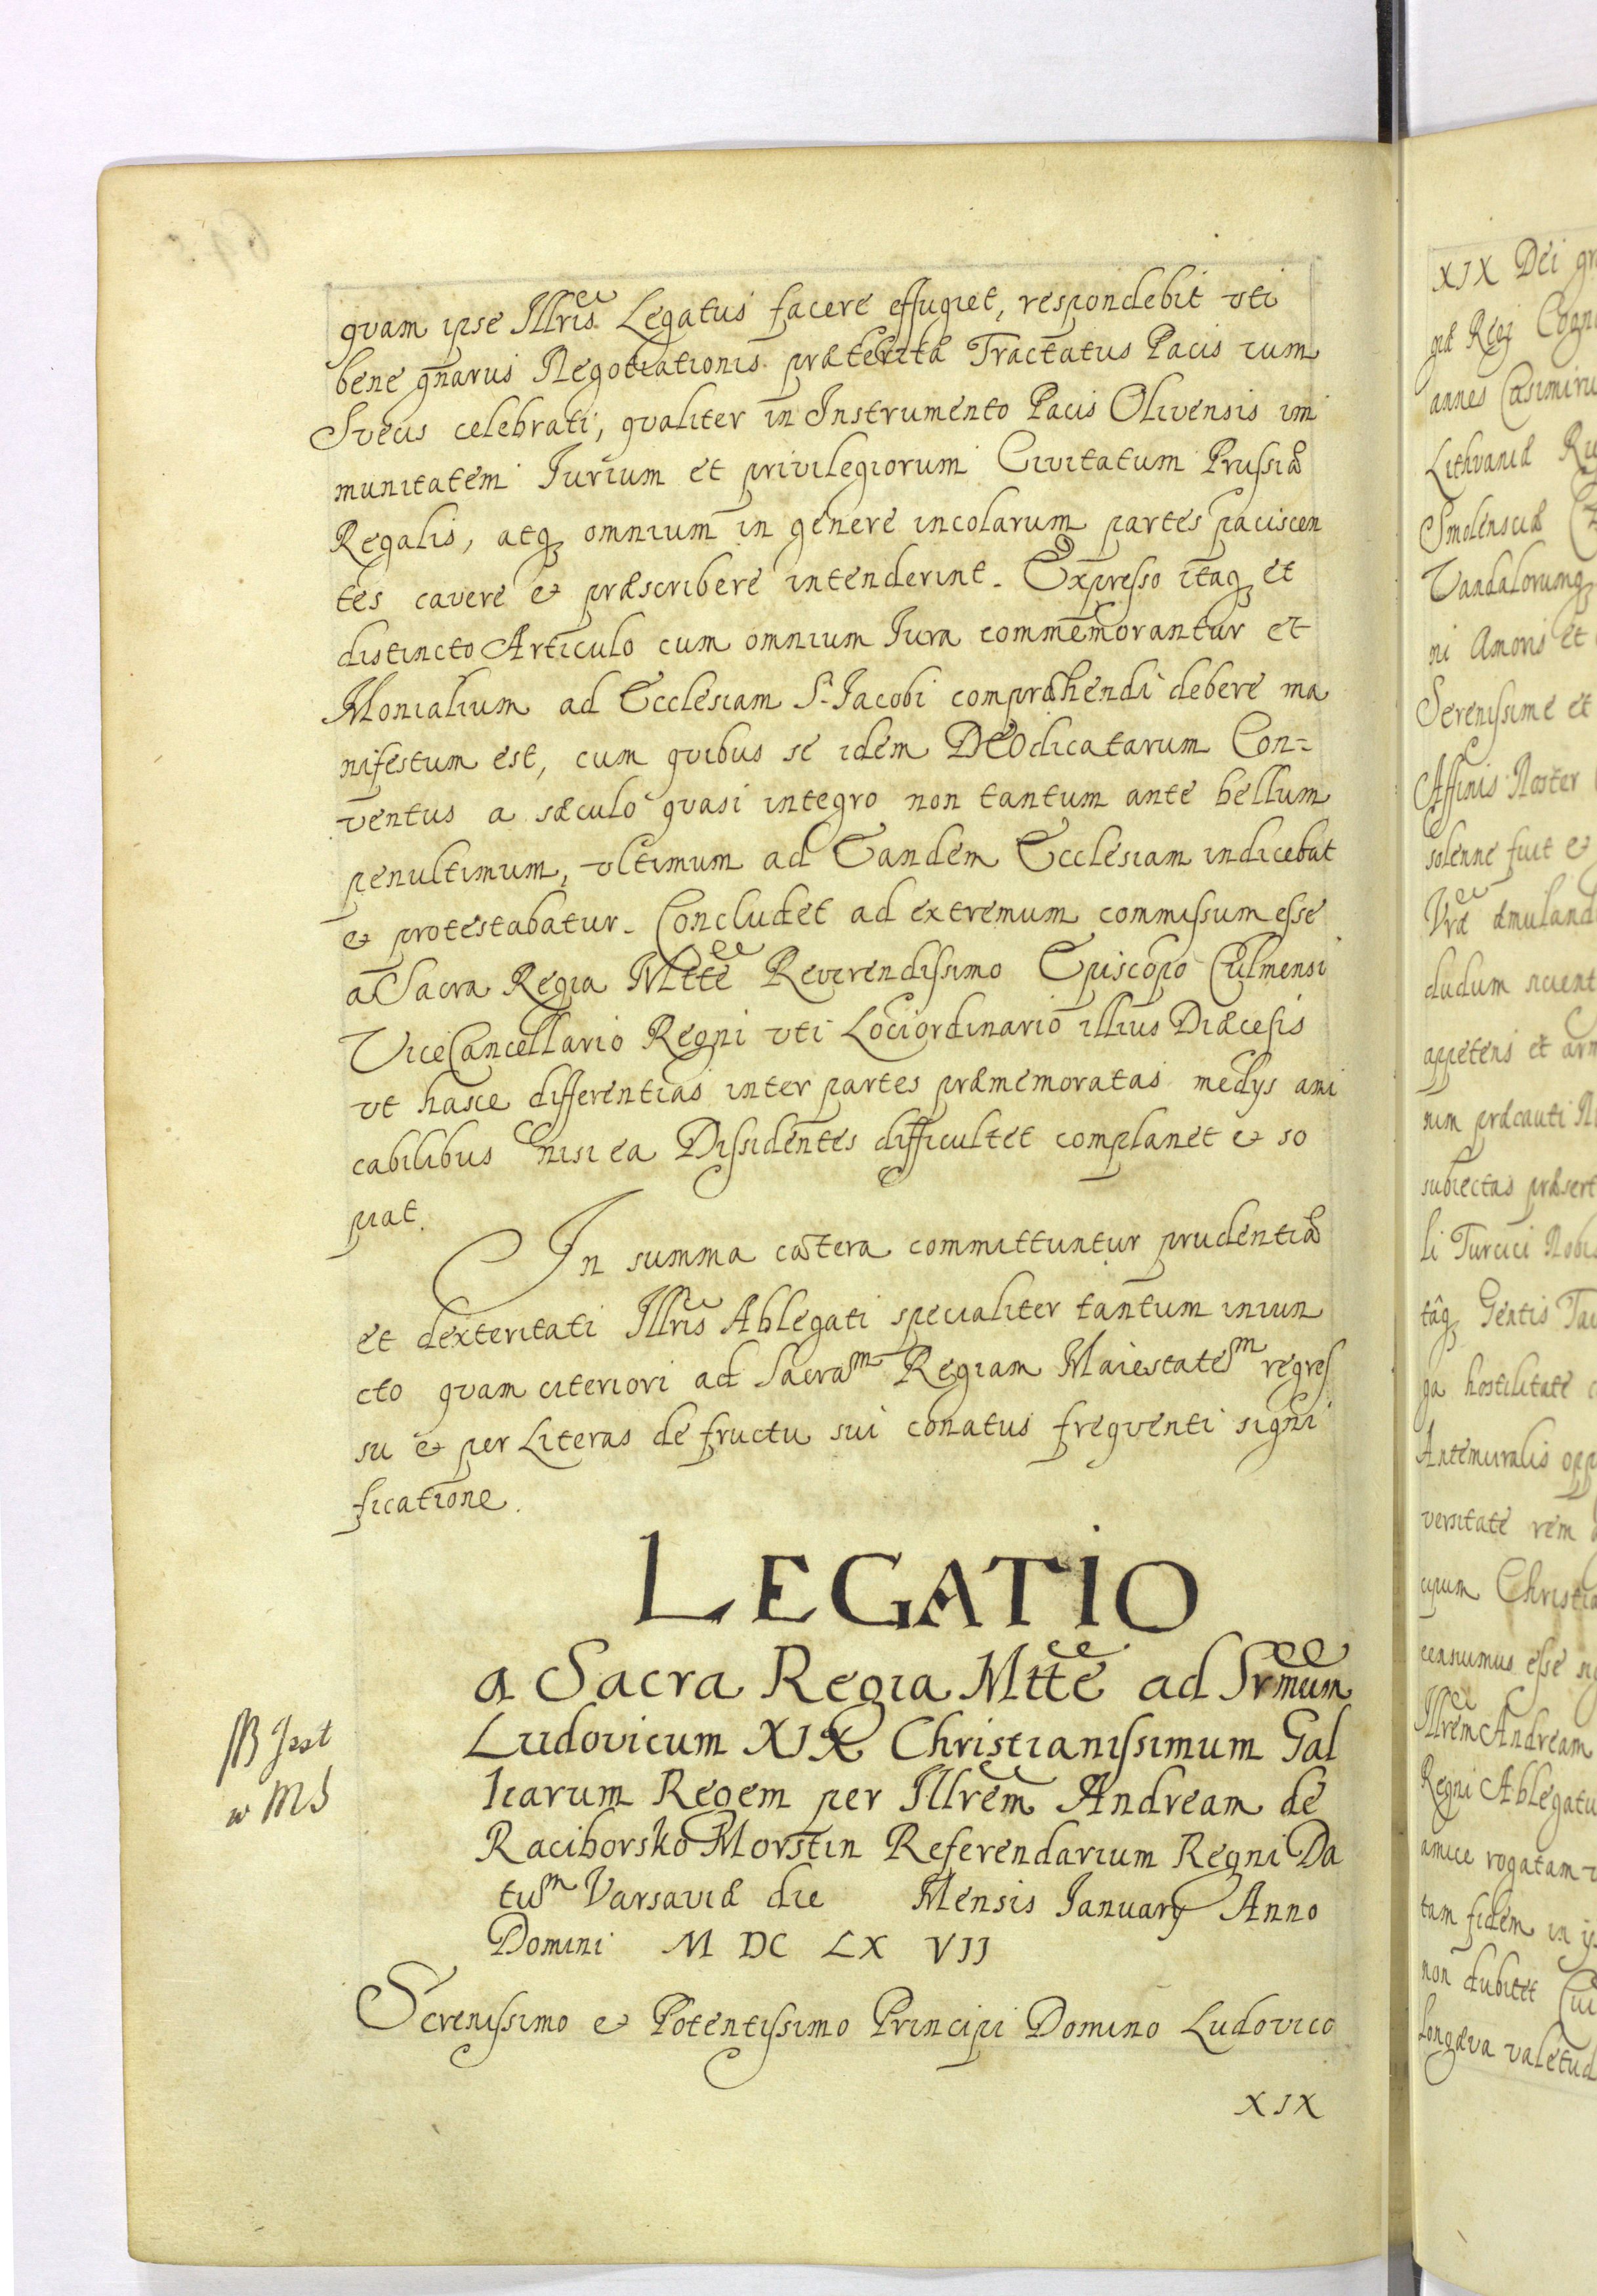 quam ipse Illris Legatus facere effugiet, respondebit uti
bene gnarus Negotiationis præteritæ Tractatus Pacis cum
Svecis celebrati, qualiter in Instrumento Pacis Olivensis im
munitatem Iurium et privilegiorum Civitatum Prussiæ
Regalis, atq omnium in genere incolarum partes paciscen
tes cavere & præscribere intenderint. Expresso itaq et
distincto Articulo cum omnium Iura commemorantur et
Monialium ad Ecclesiam S. Jacobi compræhendi debere ma
nifestum est, cum quibus se idem DEOdicatarum Con=
ventus a sæculo quasi integro non tantum ante bellum
penultimum, ultimum ad Eandem Ecclesiam indicebat
& protestabatur. Concludet ad extremum commissum esse
a Sacra Regia Mtte Reverendissimo Episcopo Culmensi
ViceCancellario Regni uti Lociordinario illius Diæcesis
ut hasce differentias inter partes præmemoratas medys ami
cabilibus nisi ea Dissidentes difficultet complanet & so
piat.
In summa cætera committuntur prudentiæ
et dexteritati Illris Ablegati specialiter tantum iniun
cto quam citeriori ad Sacram Regiam Maiestatem regres
su & per Literas de fructu sui conatus frequenti signi
ficatione.
LEGATIO
a Sacra Regia Mtte ad Srmum
Ludovicum XIX Christianissimum Gal
licarum Regem per Illrem Andream de
Raciborsko Morstin Referendarium Regni Da
tum Varsaviæ die Mensis January Anno
Domini M DC LX VII
NB Jest
w MS
Serenissimo & Potentissimo Principi Domino Ludovico
XIX
XIX Dei
Regi
annes Casimiru
Lithvaniæ
Smolensciæ
Vandalorumq
ni Amoris et
Serenissime et
Affinis Noster
solenne fuit &
Vræ æmuland
dudum
appetens et arm
nim præcauti
subiectas præsert
li Turcici Nobis
tâq Gentis Ta
ga hostilitate
Antemuralis opp
versitate rem
Christia
censumus esse
Illrem Andream
Regni Ablegatu
amice rogatam
tam fidem in
non dubitet
longæva valetud